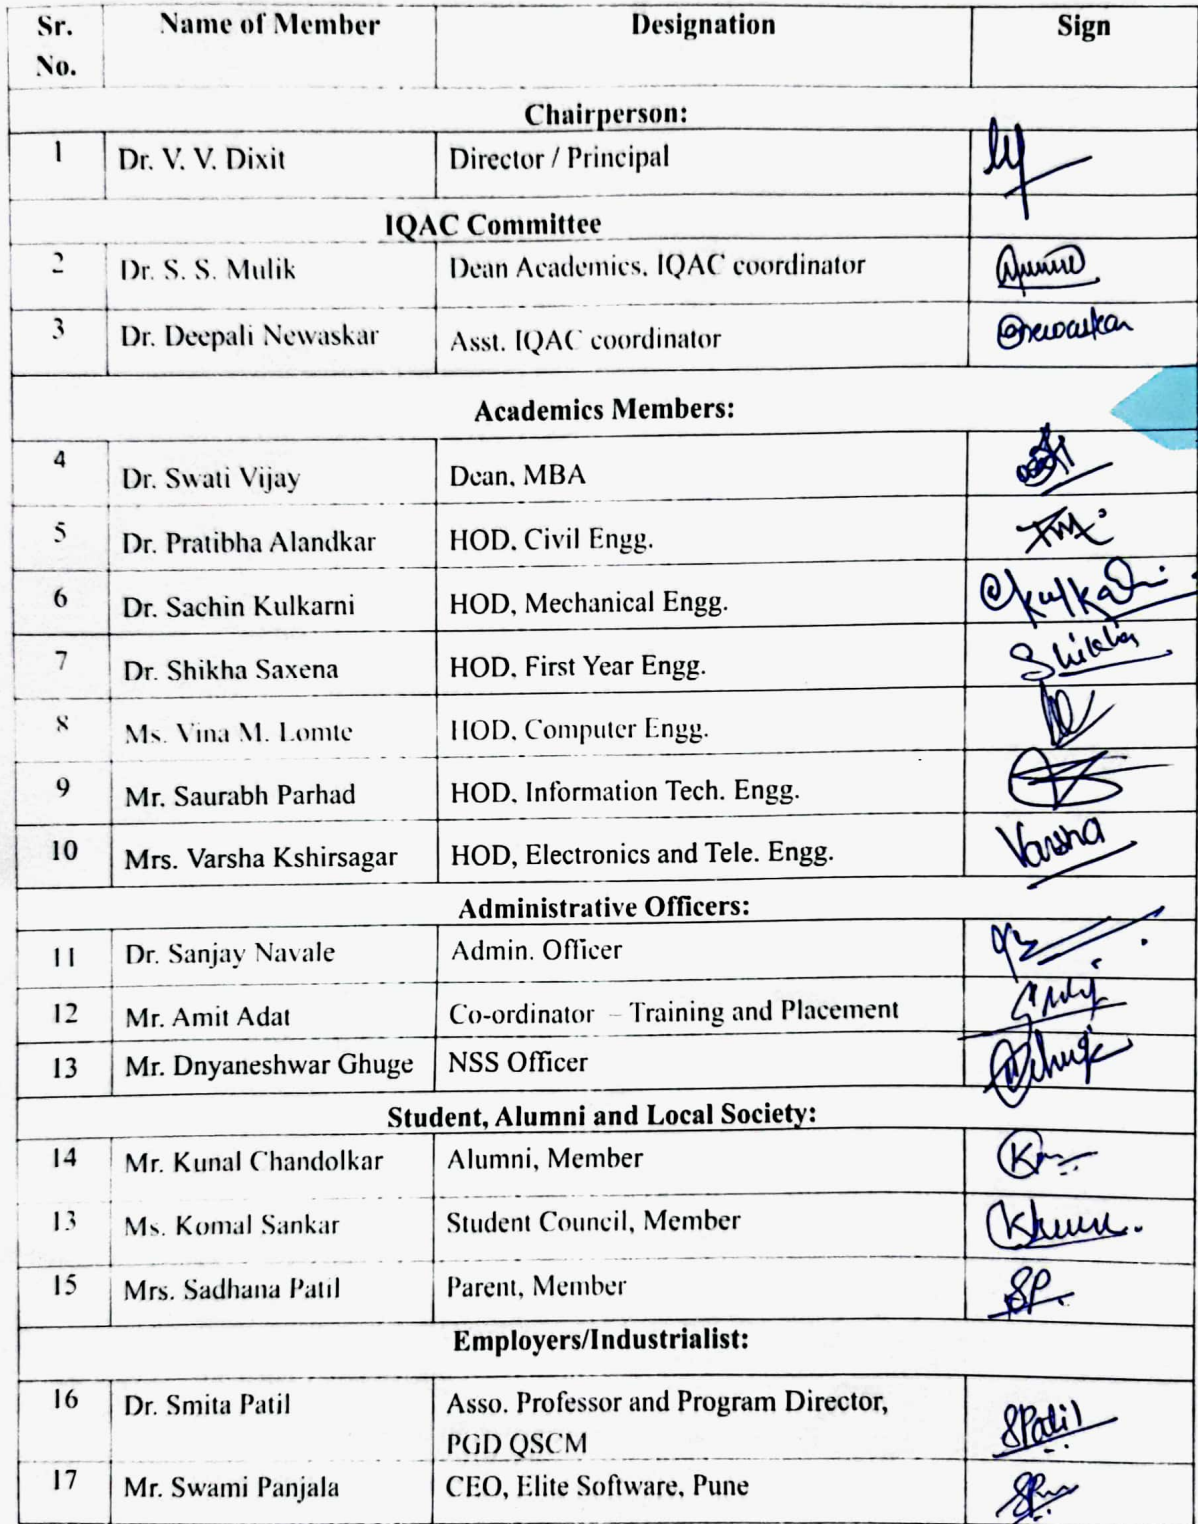 Sr. No. Name of Member Designation Sign
Chairperson:
1 Dr. V. V. Dixit Director / Principal
IQAC Committee
2 Dr. S. S. Mulik Dean Academics, IQAC coordinator
3 Dr. Deepali Newaskar Asst. IQAC coordinator
Academics Members:
4 Dr. Swati Vijay Dean, MBA
5 Dr. Pratibha Alandkar HOD, Civil Engg.
6 Dr. Sachin Kulkarni HOD, Mechanical Engg.
7 Dr. Shikha Saxena HOD, First Year Engg. Shikha
8 Ms. Vina M. Lomte HOD, Computer Engg.
9 Mr. Saurabh Parhad HOD, Information Tech. Engg.
10 Mrs. Varsha Kshirsagar HOD, Electronics and Tele. Engg. Varsha
Administrative Officers:
11 Dr. Sanjay Navale Admin. Officer
12 Mr. Amit Adat Co-ordinator – Training and Placement
13 Mr. Dnyaneshwar Ghuge NSS Officer
Student, Alumni and Local Society:
14 Mr. Kunal Chandolkar Alumni, Member
13 Ms. Komal Sankar Student Council, Member
15 Mrs. Sadhana Patil Parent, Member SP.
Employers/Industrialist:
16 Dr. Smita Patil Asso. Professor and Program Director,
PGD QSCM SPatil
17 Mr. Swami Panjala CEO, Elite Software, Pune